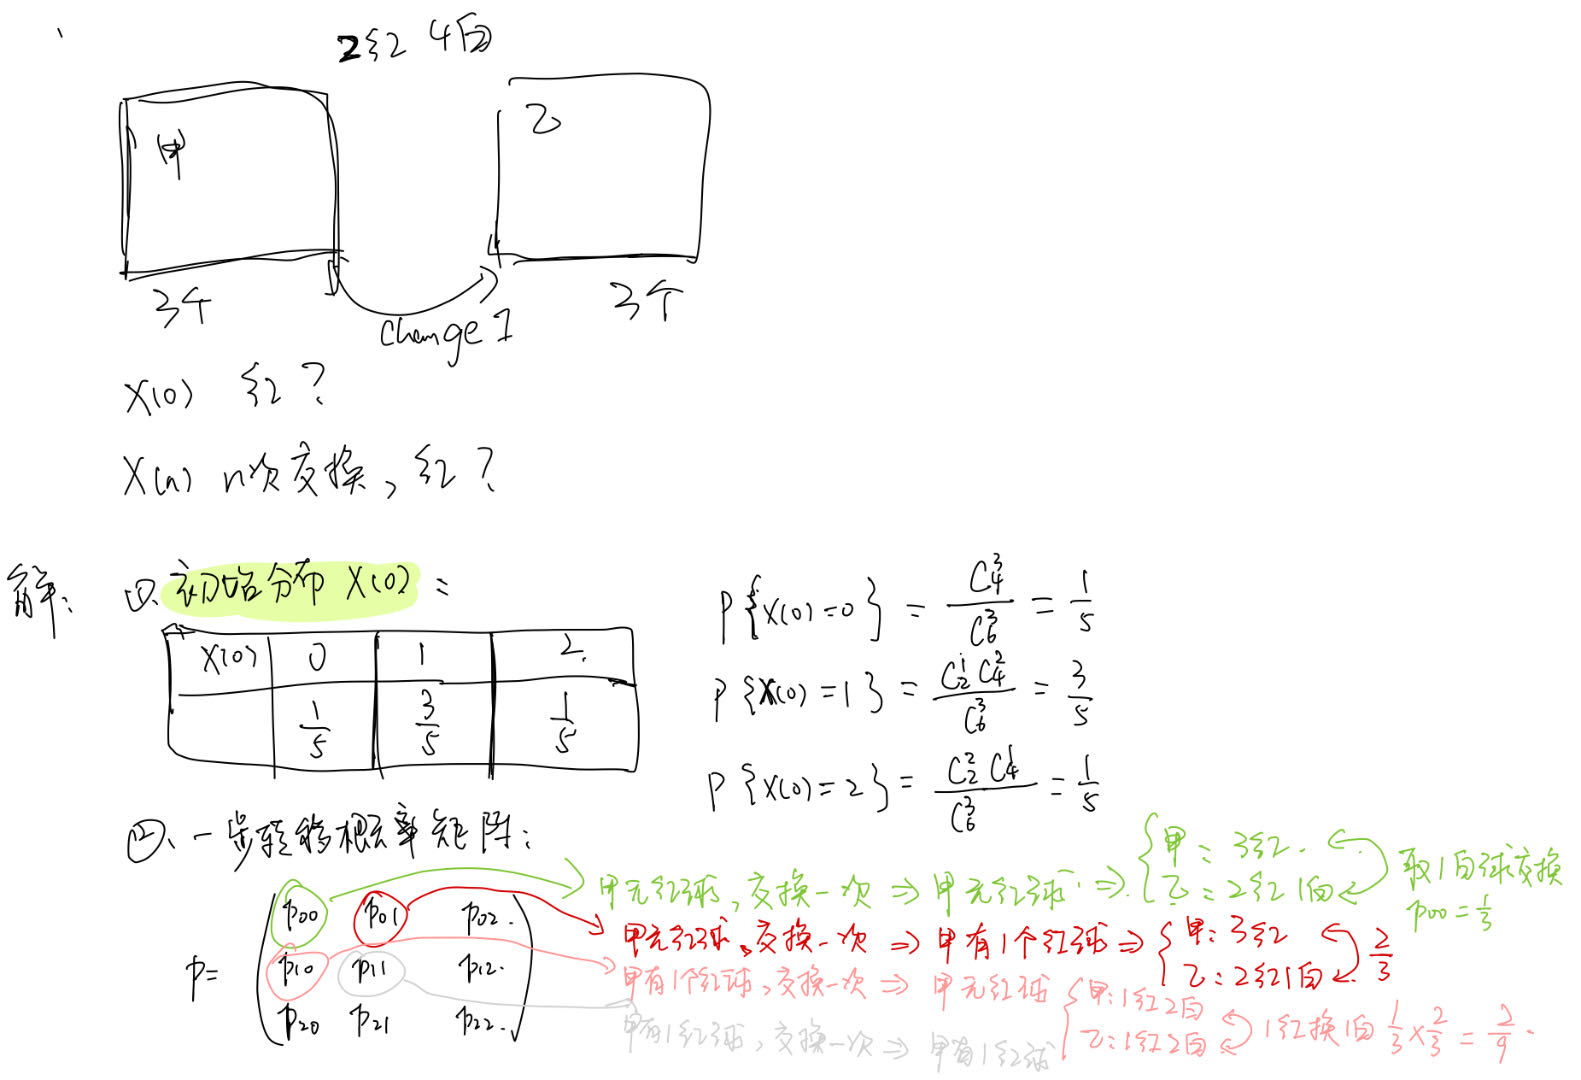 2红 4白
甲
乙
3个
3个
change 1
X(0) 红?
X(n) n次交换,红?
解:
①、初始分布 X(0) =
X(0) 0 1 2.
1/5 3/5 1/5
P{X(0)=0} = C_4^3 / C_6^3 = 1/5
P{X(0)=1} = C_2^1 C_4^2 / C_6^3 = 3/5
P{X(0)=2} = C_2^2 C_4^1 / C_6^3 = 1/5
②、一步转移概率矩阵:
P=
p00 p01 p02.
p10 p11 p12.
p20 p21 p22.
甲无红球,交换一次 ⇒ 甲无红球. ⇒ { 甲: 3红.
乙: 2红1白
取1白球交换
p00 = 1/3
甲无红球、交换一次 ⇒ 甲有1个红球 ⇒ { 甲: 3红
乙: 2红1白
2/3
甲有1个红球,交换一次 ⇒ 甲无红球 { 甲: 1红2白
乙: 1红2白
1红换1白 1/3 × 2/3 = 2/9.
甲有1红球,交换一次 ⇒ 甲有1红球